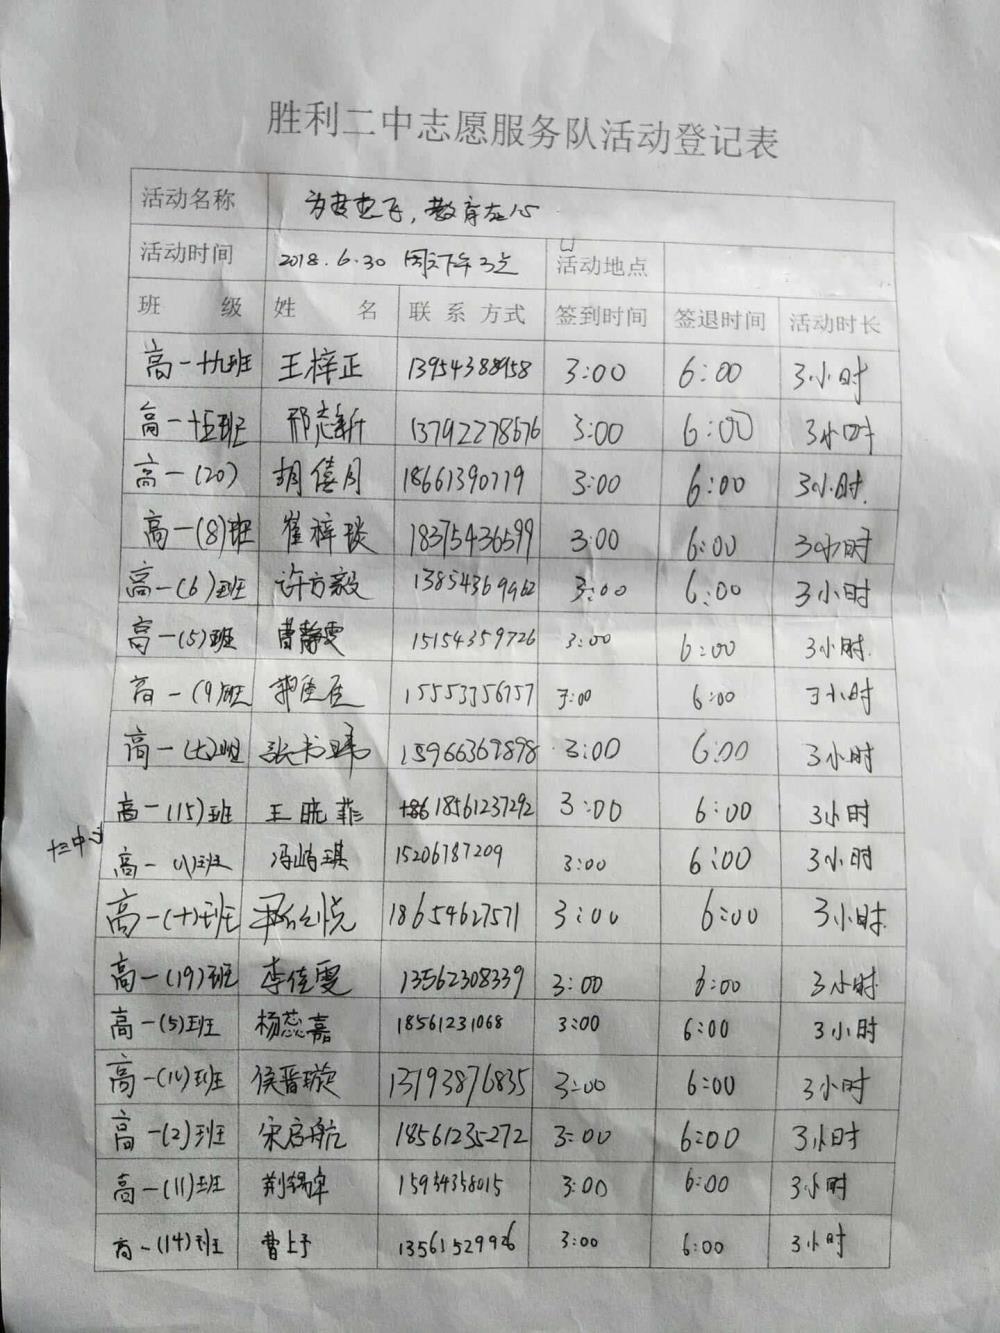 胜利二中志愿服务队活动登记表
活动名称 为梦想飞,教育在心
活动时间 2018.6.30 周六下午3点 活动地点
班级 姓名 联系方式 签到时间 签退时间 活动时长
高一十九班 王梓正 13954388958 3:00 6:00 3小时
高一十五班 邢志新 13792278676 3:00 6:00 3小时
高一(20) 胡僖月 18661390779 3:00 6:00 3小时.
高一(8)班 崔梓琰 18375436599 3:00 6:00 3小时
高一(6)班 许方毅 13854369962 3:00 6:00 3小时
高一(5)班 曹静雯 15154359726 3:00 6:00 3小时.
高一(9)班 15553756757 3:00 6:00 3小时
高一(七)班 张书玮 15966369898 3:00 6:00 3小时
高一(15)班 王晓菲 +86 18561237292 3:00 6:00 3小时
十三中
高一(1)班 冯屿琪 15206787209 3:00 6:00 3小时
高一(十)班 18654627571 3:00 6:00 3小时.
高一(19)班 李佳雯 13562308339 3:00 6:00 3小时
高一(5)班 杨蕊嘉 18561231068 3:00 6:00 3小时
高一(10)班 侯晋璇 13793876835 3:00 6:00 3小时
高一(2)班 宋启航 18561235272 3:00 6:00 3小时
高一(11)班 荆锡华 15954358015 3:00 6:00 3小时
高一(14)班 曹上予 13561529926 3:00 6:00 3小时